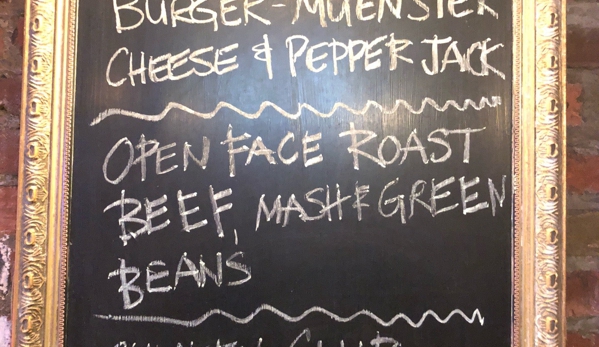 BURGER-MUENSTER
CHEESE & PEPPER JACK
OPEN FACE ROAST
BEEF, MASH & GREEN
BEANS